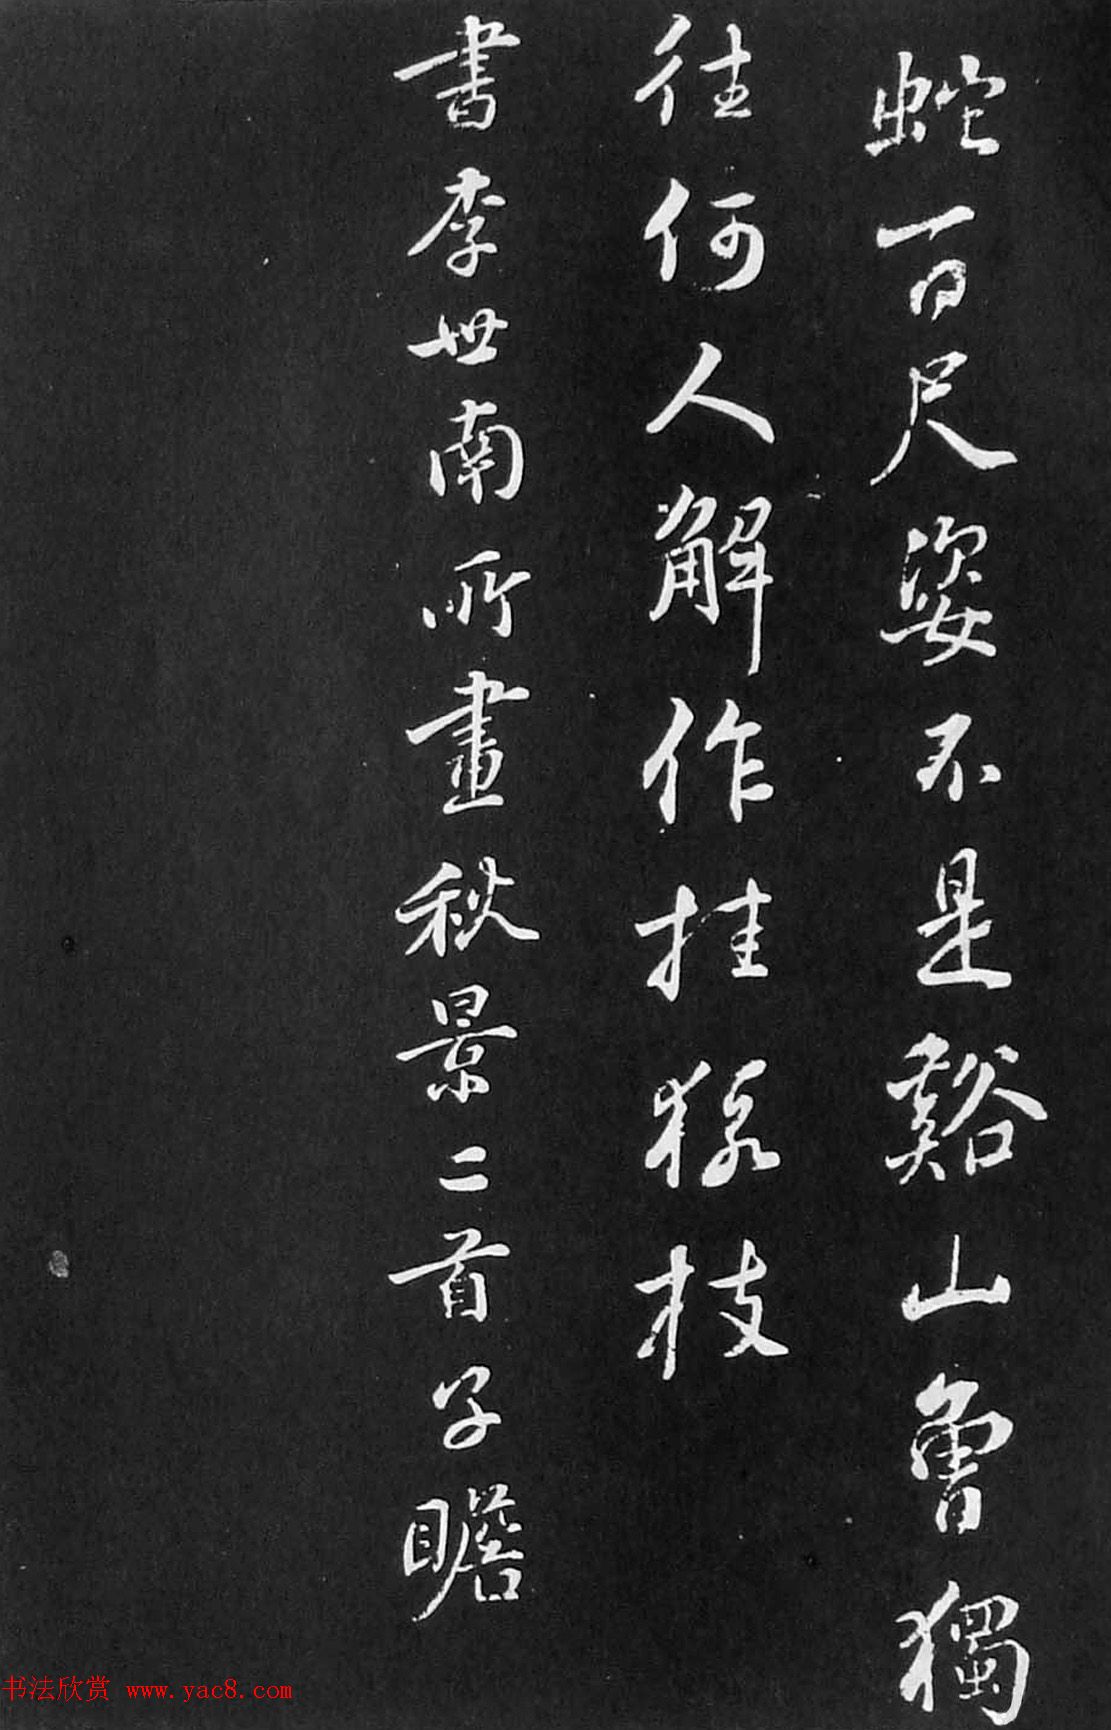 蛇百尺姿不是谿山曾獨
往何人解作挂猨枝
書李世南所畫秋景二首子瞻
书法欣赏 www.yac8.com